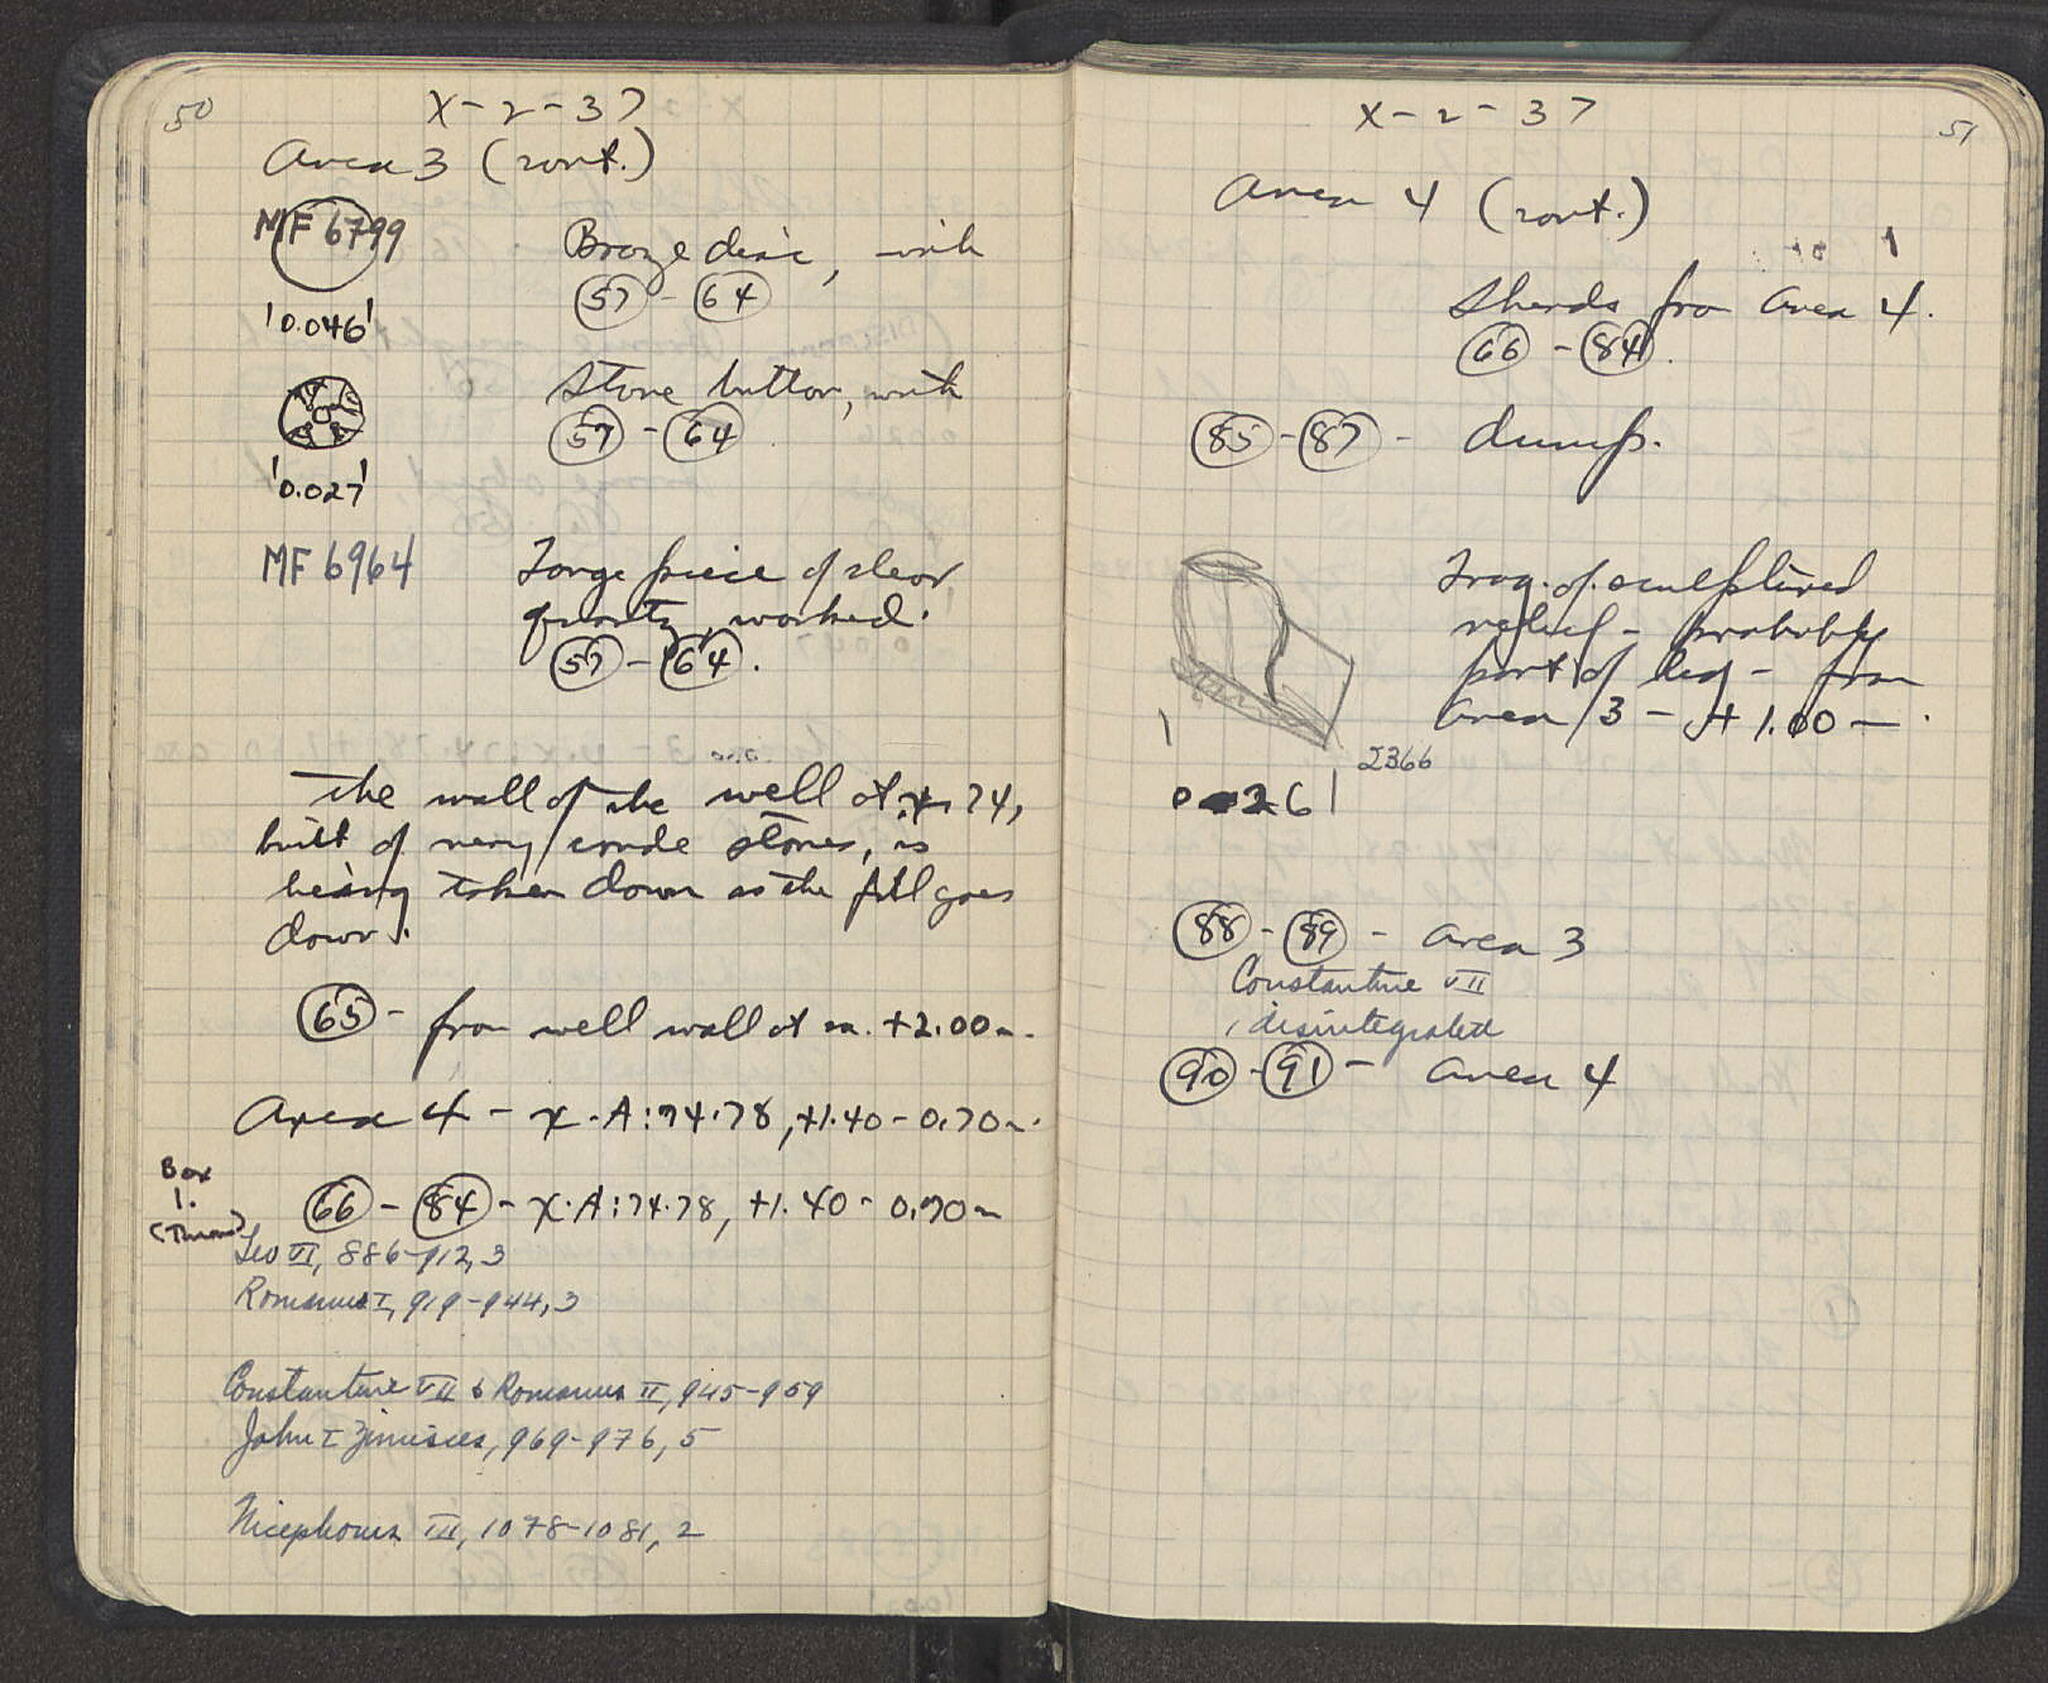 50
X-2-37
Area 3 (cont.)
MF 6799
Bronze disc, with
57 - 64
0.046
Stone button, with
57 - 64
0.027
MF 6964
Large piece of clear
quartz, worked.
57 - 64.
The wall of the well at x 74,
built of very crude stones, is
being taken down as the fill goes
down.
65 - from well wall at ca. +2.00 m.
Area 4 - x-A:74.78, +1.40-0.70 m.
Box
1.
66 - 84 - x.A:74.78, +1.40 - 0.70 m
Leo VI, 886-912, 3
Romanus I, 919-944, 3
Constantine VII & Romanus II, 945-959
John I Zimisces, 969-976, 5
Nicephorus III, 1078-1081, 2
51
X-2-37
Area 4 (cont.)
Sherds from Area 4.
66 - 84.
85 - 87 - dump.
Frag. of sculptured
relief - probably
part of leg - from
Area 3 - +1.00 -
2366
88 - 89 - Area 3
Constantine VII
1 disintegrated
90 - 91 - Area 4